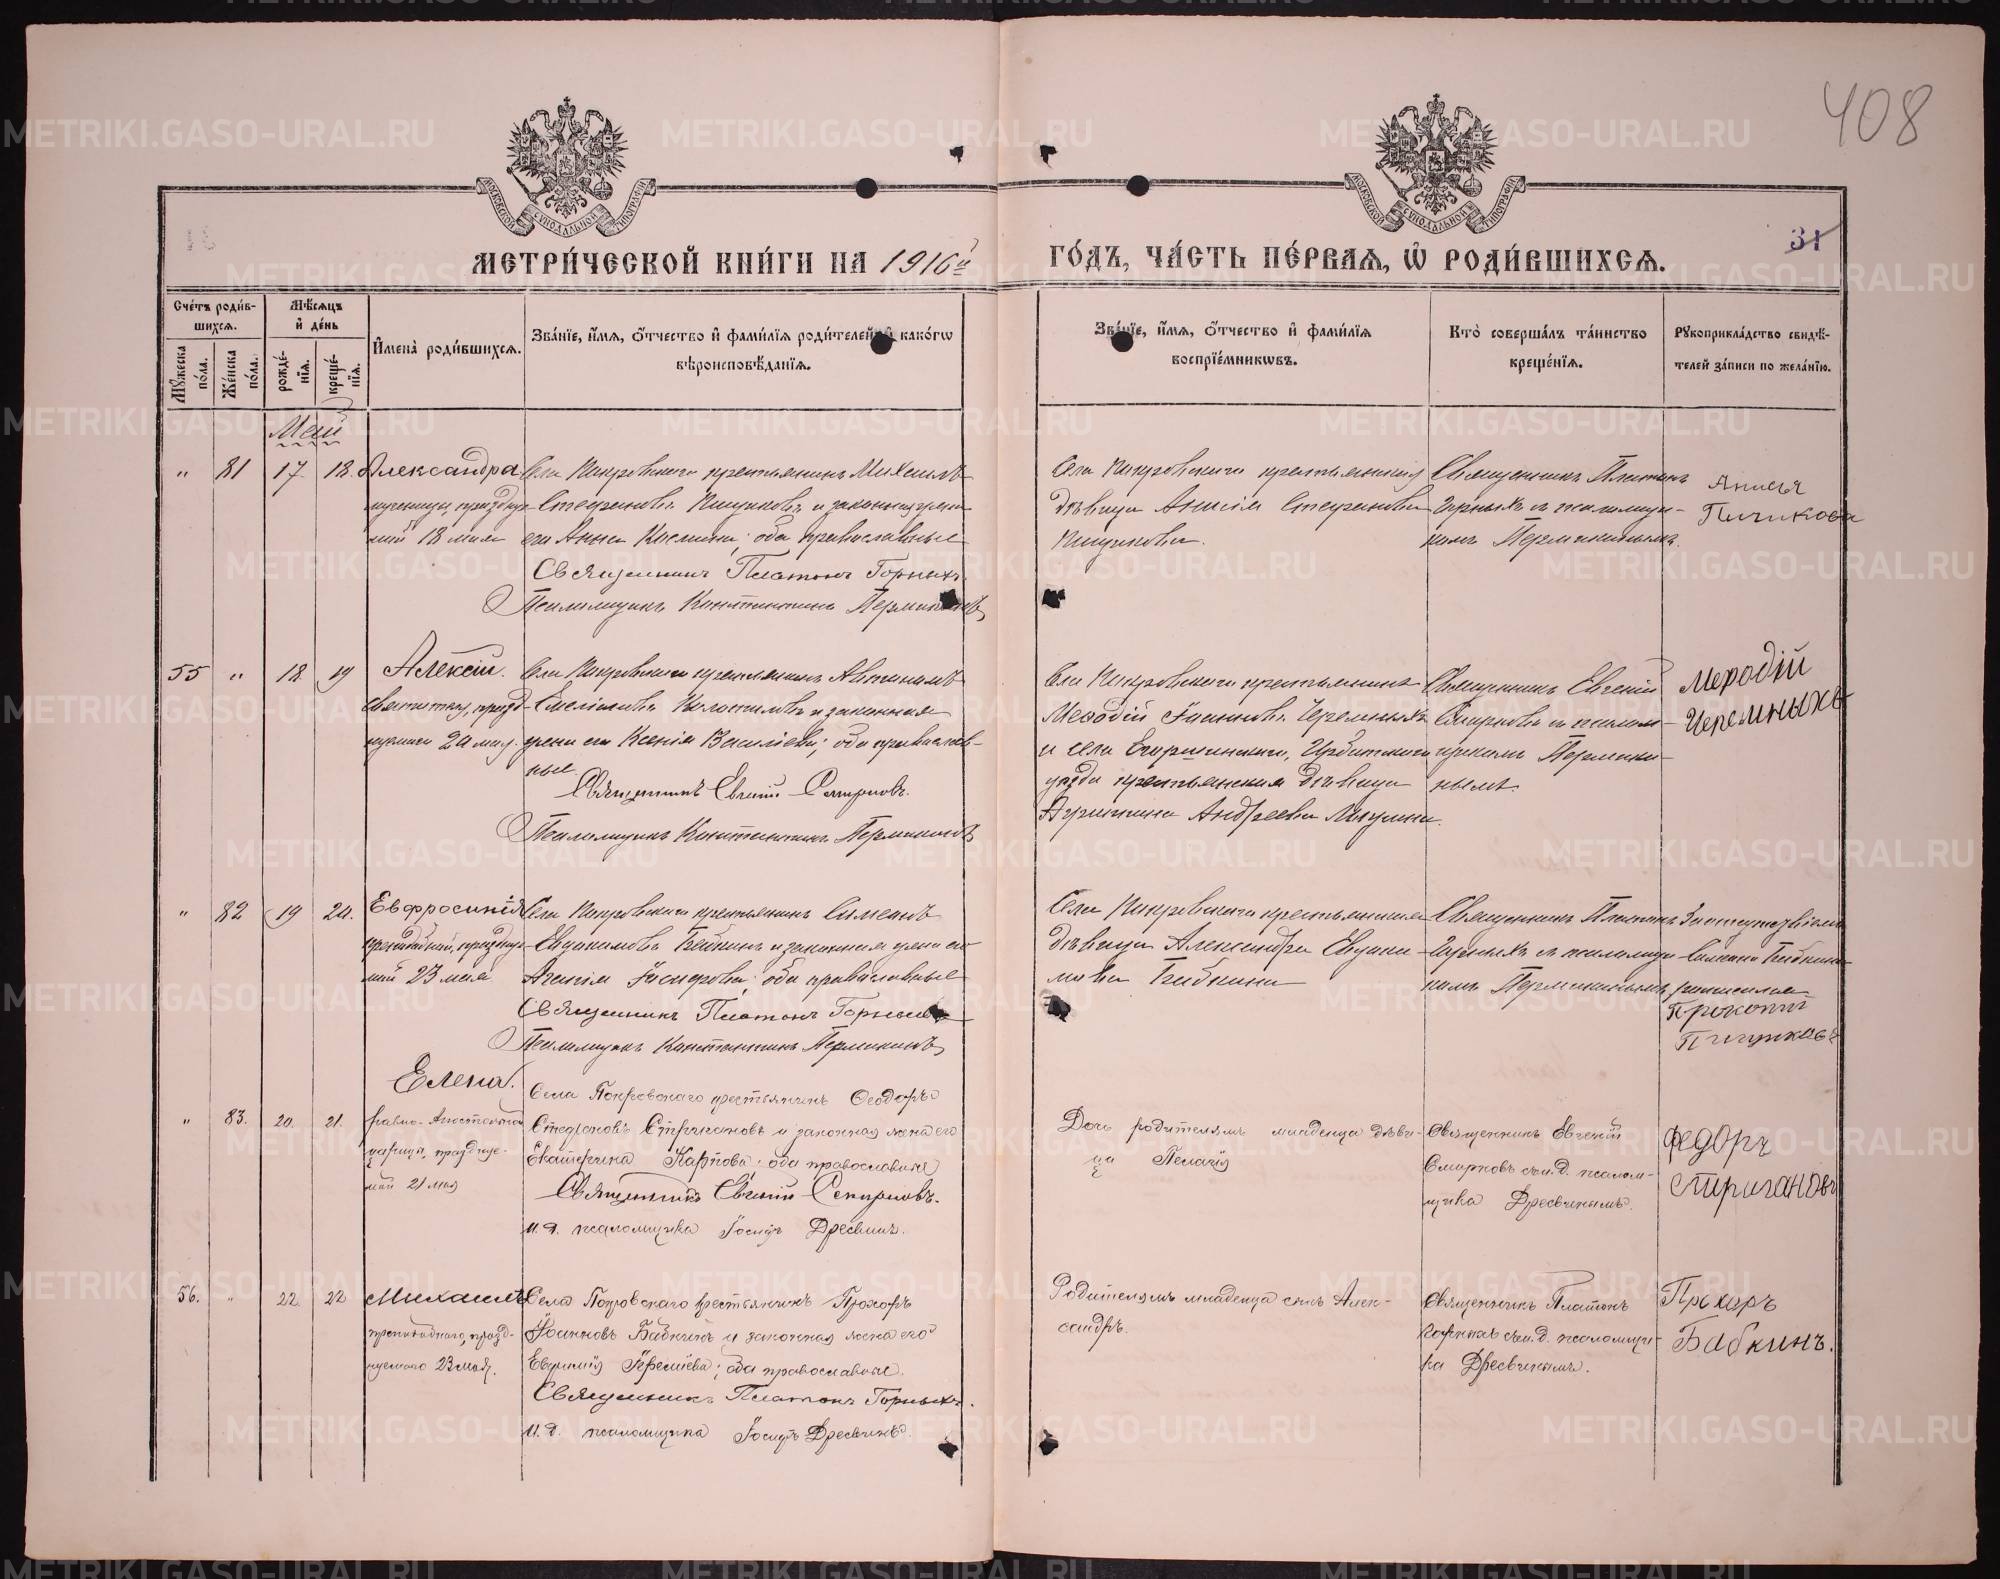 408
31
МОСКОВСКОЙ СѴНОДАЛЬНОЙ ТИПОГРАФІИ
МОСКОВСКОЙ СѴНОДАЛЬНОЙ ТИПОГРАФІИ
МЕТРИ́ЧЕСКОЙ КНИ́ГИ НА 1916й
ГО́ДЪ, ЧА́СТЬ ПЕ́РВАЯ, Ѡ҆ РОДИ́ВШИХСЯ.
Сче́тъ роди́в-
шихся.
Мꙋ́жеска по́ла.
Же́нска по́ла.
Мѣ́сяцъ
и҆ де́нь
рожде́-
нїя.
креще́-
нїя.
И҆мена̀ роди́вшихся.
Зва́нїе, и҆́мя, ѻ҆́тчество и҆ фами́лїя роди́телей, и҆ како́гѡ
вѣроисповѣ́данїя.
Зва́нїе, и҆́мя, ѻ҆́тчество и҆ фами́лїя
воспрїе́мникѡвъ.
Кто̀ соверша́лъ та́инство
креще́нїя.
Рꙋкоприкла́дство свидѣ́-
телей за́писи по жела́нїю.
Май
" 81 17. 18. Александра
мученицы, празднуе-
мой 18 мая
Села Покровскаго крестьянинъ Михаилъ
Стефановъ Пичуковъ и законная жена
его Анна Космина; оба православные
Священникъ Платонъ Горныхъ.
Псаломщикъ Константинъ Пермикинъ
Села Покровскаго крестьянская
дѣвица Анисія Стефанова
Пичукова.
Священникъ Платонъ
Горныхъ съ псаломщи-
комъ Пермикинымъ.
Анисья
Пичикова
55 " 18 19 Алексій.
святителя, празд-
нуемаго 20 мая.
Села Покровскаго крестьянинъ
Емеліановъ и законная
жена его Ксенія Василіева; оба православ-
ные.
Священникъ Евгеній Смирновъ.
Псаломщикъ Константинъ Пермикинъ
Села Покровскаго крестьянинъ
Меѳодій Іоанновъ Черемныхъ
и села Егоршинскаго, Ирбитскаго
уѣзда крестьянская дѣвица
Андреева
Священникъ Евгеній
Смирновъ съ псалом-
щикомъ Перм��ки-
нымъ.
Мефодій
Черемныхъ
" 82 19 20. Евфросинія
преподобной, празднуе-
мой 23 мая
Села Покровскаго крестьянинъ Симеонъ
Евдокимовъ Бабкинъ и законная жена его
оба православные
Священникъ Платонъ Горныхъ
Псаломщикъ Константинъ Пермикинъ
Села Покровскаго крестьянская
дѣвица Александра Евдоки-
мова Бабкина
Священникъ Платонъ
Горныхъ съ псаломщи-
комъ Пермикинымъ
Симеона Бабкина
росписался
Прокопий
Пичуковъ
" 83. 20. 21. Елена.
равно-Апостольной
царицы, праздnue-
мой 21 мая
Села Покровскаго крестьянинъ Ѳеодоръ
Стефановъ Стригановъ и законная жена его
Екатерина Карпова; оба православные
Священникъ Евгеній Смирновъ.
И. д. псаломщика Іосифъ Дресвинъ.
Дочь родителямъ младенца дѣви-
ца Пелагія
Священникъ Евгеній
Смирновъ съ и. д. псалом-
щика Дресвинымъ.
Федоръ
Стригановъ
56. " 22 22 Михаилъ
преподобнаго, празд-
нуемаго 23 мая.
Села Покровскаго крестьянинъ Прохоръ
Іоанновъ Бабкинъ и законная жена его
Евфимія; оба православные.
Священникъ Платонъ Горныхъ.
И. д. псаломщика Іосифъ Дресвинъ.
Родителямъ младенца сынъ Алек-
сандръ.
Священникъ Платонъ
Горныхъ съ и. д. псаломщи-
ка Дресвинымъ.
Прохоръ
Бабкинъ.
METRIKI.GASO-URAL.RU